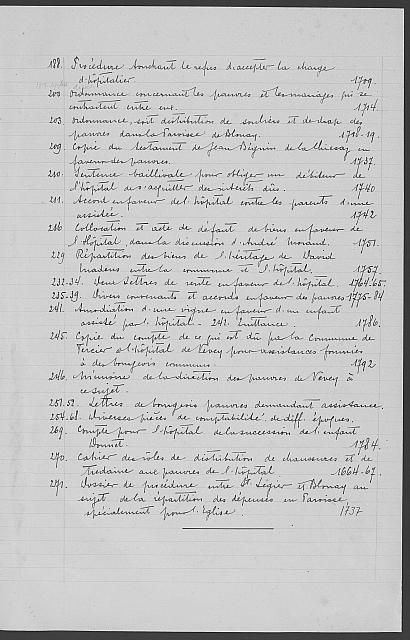 188. Procédure touchant le refus d'accepter la charge
d'hôpitalier 1709.
200 Ordonnance concernant les pauvres et les mariages qui se
contractent entre eux. 1714.
203. Ordonnance, soit distribution de souliers et de drap des
pauvres dans la Paroisse de Blonay. 1718-19.
209. Copie du testament de Jean Béguin de la Chiésaz en
faveur des pauvres. 1737.
210. Sentence baillivale pour obliger un débiteur de
l'hôpital de s'acquitter des intérêts dûs. 1740
211. Accord en faveur de l'hôpital contre les parents d'une
assistée. 1742
216 Collocation et acte de défaut de biens en faveur de
l'Hôpital, dans la discussion d'André Morand. 1751.
229 Répartition des biens de l'héritage de David
entre la commune et l'hôpital. 1757.
232-34. Deux Lettres de rente en faveur de l'hôpital 1764-65.
235-39. Divers convenants et accords en faveur des pauvres 1775-84
241. Amodiation d'une vigne en faveur d'un enfant
assisté par l'hôpital - 242. Quittance. 1786.
245. Copie du compte de ce qui est dû par la Commune de
à l'hôpital de Vevey pour assistances fournies
à des bourgeois communs. 1792
246. Mémoire de la direction des pauvres de Vevey à
ce sujet.
251-52. Lettres de bourgeois pauvres demandant assistance.
254-68. Diverses pièces de comptabilité de diff. époques.
269. Compte pour l'hôpital de la succession de l'enfant
Bonnet. 1784.
270. Cahier des rôles de distribution de chaussures et de
tredaine aux pauvres de l'hôpital 1664-67.
271. Dossier de procédure entre St Légier et Blonay au
sujet de la répartition des dépenses en Paroisse,
spécialement pour l'Eglise. 1737